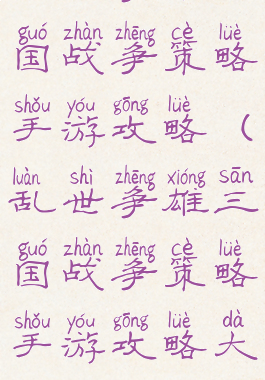 guó zhàn zhēng cè lüè
国战争策略
shǒu yóu gōng lüè
手游攻略（
luàn shì zhēng xióng sān
乱世争雄三
guó zhàn zhēng cè lüè
国战争策略
shǒu yóu gōng lüè dà
手游攻略大